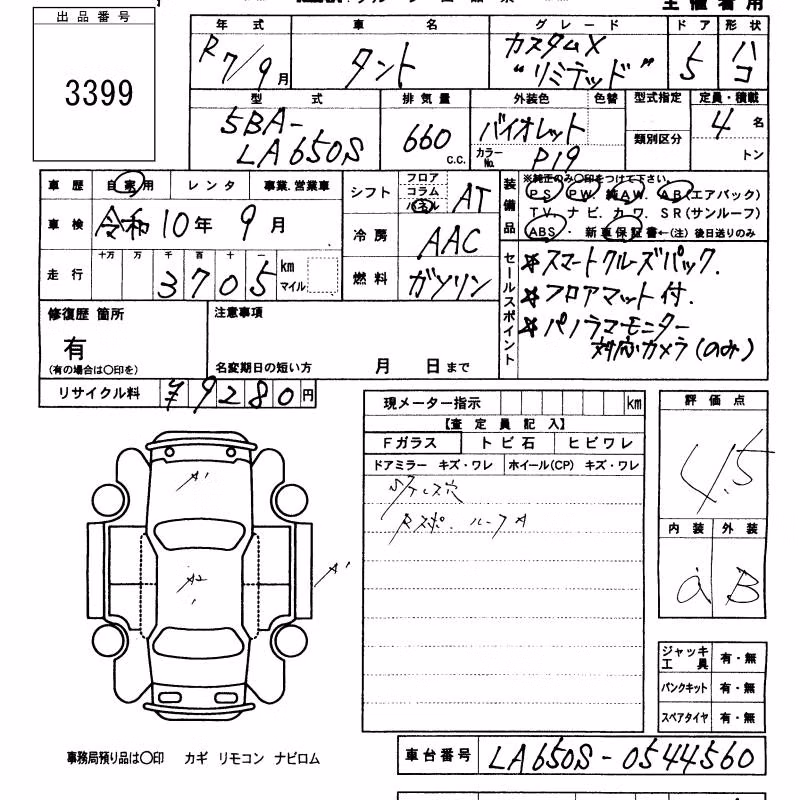 出品番号
3399
年式 車名 グレード ドア 形状
R7/9月 タント カスタムX "リミテッド" 5 ハコ
型式 排気量 外装色 色替 型式指定 定員・積載
5BA-LA650S 660 c.c. バイオレット 類別区分 4名
カラーNo. P19 トン
車歴 自家用 レンタ 事業.営業車
車検 令和10年9月
走行 十万 万 千 百 十 一
3705 km マイル
シフト フロア コラム パネル AT
冷房 AAC
燃料 ガソリン
装備品 ※純正のみ○印をつけて下さい。
PS. PW. 純AW. AB(エアバック)
TV. ナビ. カワ. SR(サンルーフ)
ABS・ 新車保証書←(注)後日送りのみ
セールスポイント
☆スマートクルーズパック.
☆フロアマット付.
☆パノラマモニター
対応カメラ(のみ)
修復歴 箇所
有
(有の場合は○印を)
注意事項
名変期日の短い方 月 日まで
リサイクル料 ¥9280円
現メーター指示 km
【査定員記入】
Fガラス トビ石 ヒビワレ
ドアミラー キズ・ワレ ホイール(CP) キズ・ワレ
ルーフA
評価点
4.5
内装 外装
a B
A'
A2
A'
ジャッキ工具 有・無
パンクキット 有・無
スペアタイヤ 有・無
事務局預り品は○印 カギ リモコン ナビロム
車台番号 LA650S-0544560